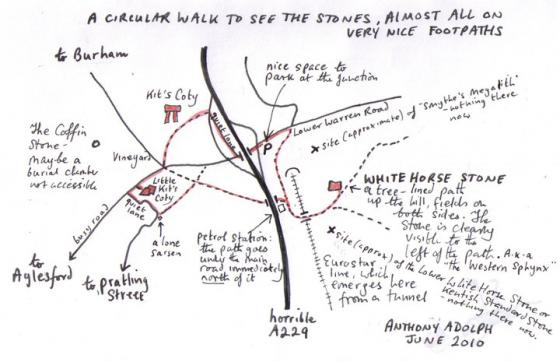 A CIRCULAR WALK TO SEE THE STONES, ALMOST ALL ON
VERY NICE FOOTPATHS
to Burham
nice space to
park at the junction
Kit's Coty
quiet lane
P
Lower Warren Road
x site (approximate) of "Smythe's Megalith"
- nothing there
now
The Coffin
Stone -
maybe a
burial chamber
not accessible
Vineyard
Little
Kit's
Coty
quiet
lane
busy road
to
Aylesford
to Pratling
Street
a lone
sarsen
Petrol Station:
the path goes
under the main
road immediately
north of it
WHITE HORSE STONE
a tree-lined path
up the hill, fields on
both sides. The
Stone is clearly
visible to the
left of the path. A.k.a
"The Western Sphynx"
x site (approx) of the Lower White Horse Stone or
Kentish Standard Stone
- nothing there now.
Eurostar
line, which
emerges here
from a tunnel
horrible
A229
ANTHONY ADOLPH
JUNE 2010